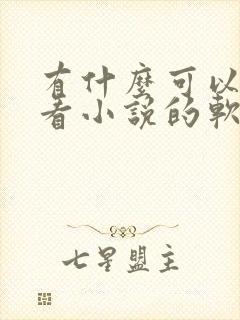 有什麼可以
看小說的軟
七星盟主